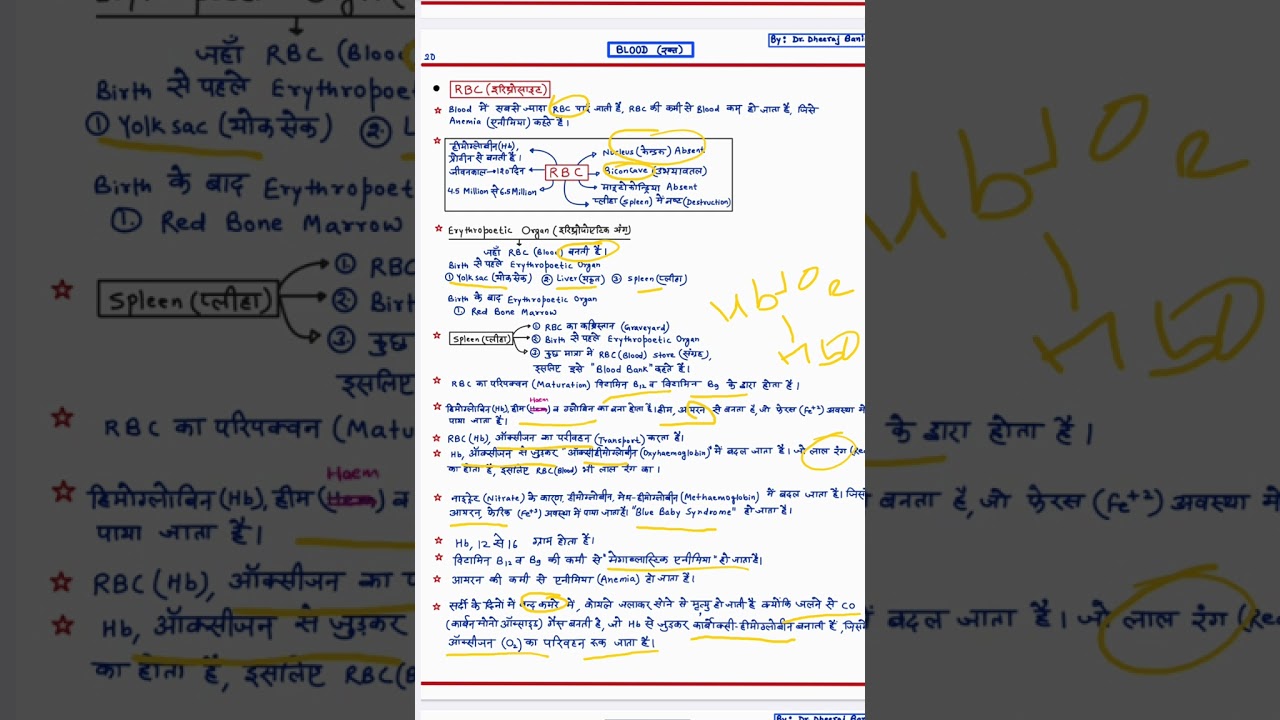 By: Dr. Dheeraj
BLOOD (रक्त)
20
RBC (इरिथ्रोसाइट)
Blood में सबसे ज्यादा RBC पाई जाती हैं, RBC की कमी से Blood कम हो जाता हैं, जिसे
Anemia (एनीमिया) कहते हैं।
हीमोग्लोबीन (Hb),
प्रोटीन से बनती हैं।
जीवनकाल → 120 दिन
4.5 Million से 6.5 Million
RBC
Nucleus (केन्द्रक) Absent
Biconcave (उभयावतल)
माइटोकोन्ड्रिया Absent
प्लीहा (Spleen) में नष्ट (Destruction)
Erythropoetic Organ (इरिथ्रोपोएटिक अंग)
जहाँ RBC (Blood) बनती हैं।
Birth से पहले Erythropoetic Organ
① Yolk sac (योकसेक) ② Liver (यकृत) ③ Spleen (प्लीहा)
Birth के बाद Erythropoetic Organ
① Red Bone Marrow
Spleen (प्लीहा)
① RBC का कब्रिस्तान (Graveyard)
② Birth से पहले Erythropoetic Organ
③ कुछ मात्रा में RBC (Blood) Store (संग्रह),
इसलिए इसे "Blood Bank" कहते हैं।
RBC का परिपक्वन (Maturation) विटामिन B12 व विटामिन B9 के द्वारा होता हैं।
हिमोग्लोबिन (Hb), हीम (Haem) व ग्लोबिन का बना होता हैं। हीम, आयरन से बनता हैं, जो फेरस (Fe+2) अवस्था में
पाया जाता हैं।
RBC (Hb), ऑक्सीजन का परिवहन (Transport) करता हैं।
Hb, ऑक्सीजन से जुड़कर "ऑक्सीहीमोग्लोबीन (Oxyhaemoglobin)" में बदल जाता हैं। जो लाल रंग (Re
का होता हैं, इसलिए RBC (Blood) भी लाल रंग का।
नाइट्रेट (Nitrate) के कारण, हीमोग्लोबीन, मेथ-हीमोग्लोबीन (Methaemoglobin) में बदल जाता हैं।
आयरन, फेरिक (Fe+3) अवस्था में पाया जाता हैं। "Blue Baby Syndrome" हो जाता हैं।
Hb, 12 से 16 ग्राम होता हैं।
विटामिन B12 व B9 की कमी से "मेगाब्लास्टिक एनीमिया" हो जाता हैं।
आयरन की कमी से एनीमिया (Anemia) हो जाता हैं।
सर्दी के दिनों में बन्द कमरे में, कोयले जलाकर सोने से मृत्यु हो जाती हैं क्योंकि जलने से CO
(कार्बन मोनो ऑक्साइड) गैस बनती है, जो Hb से जुड़कर कार्बोक्सी-हीमोग्लोबीन बनाती हैं,
ऑक्सीजन (O2) का परिवहन रूक जाता हैं।
BLOOD (रक्त)
By: Dr. Dheeraj